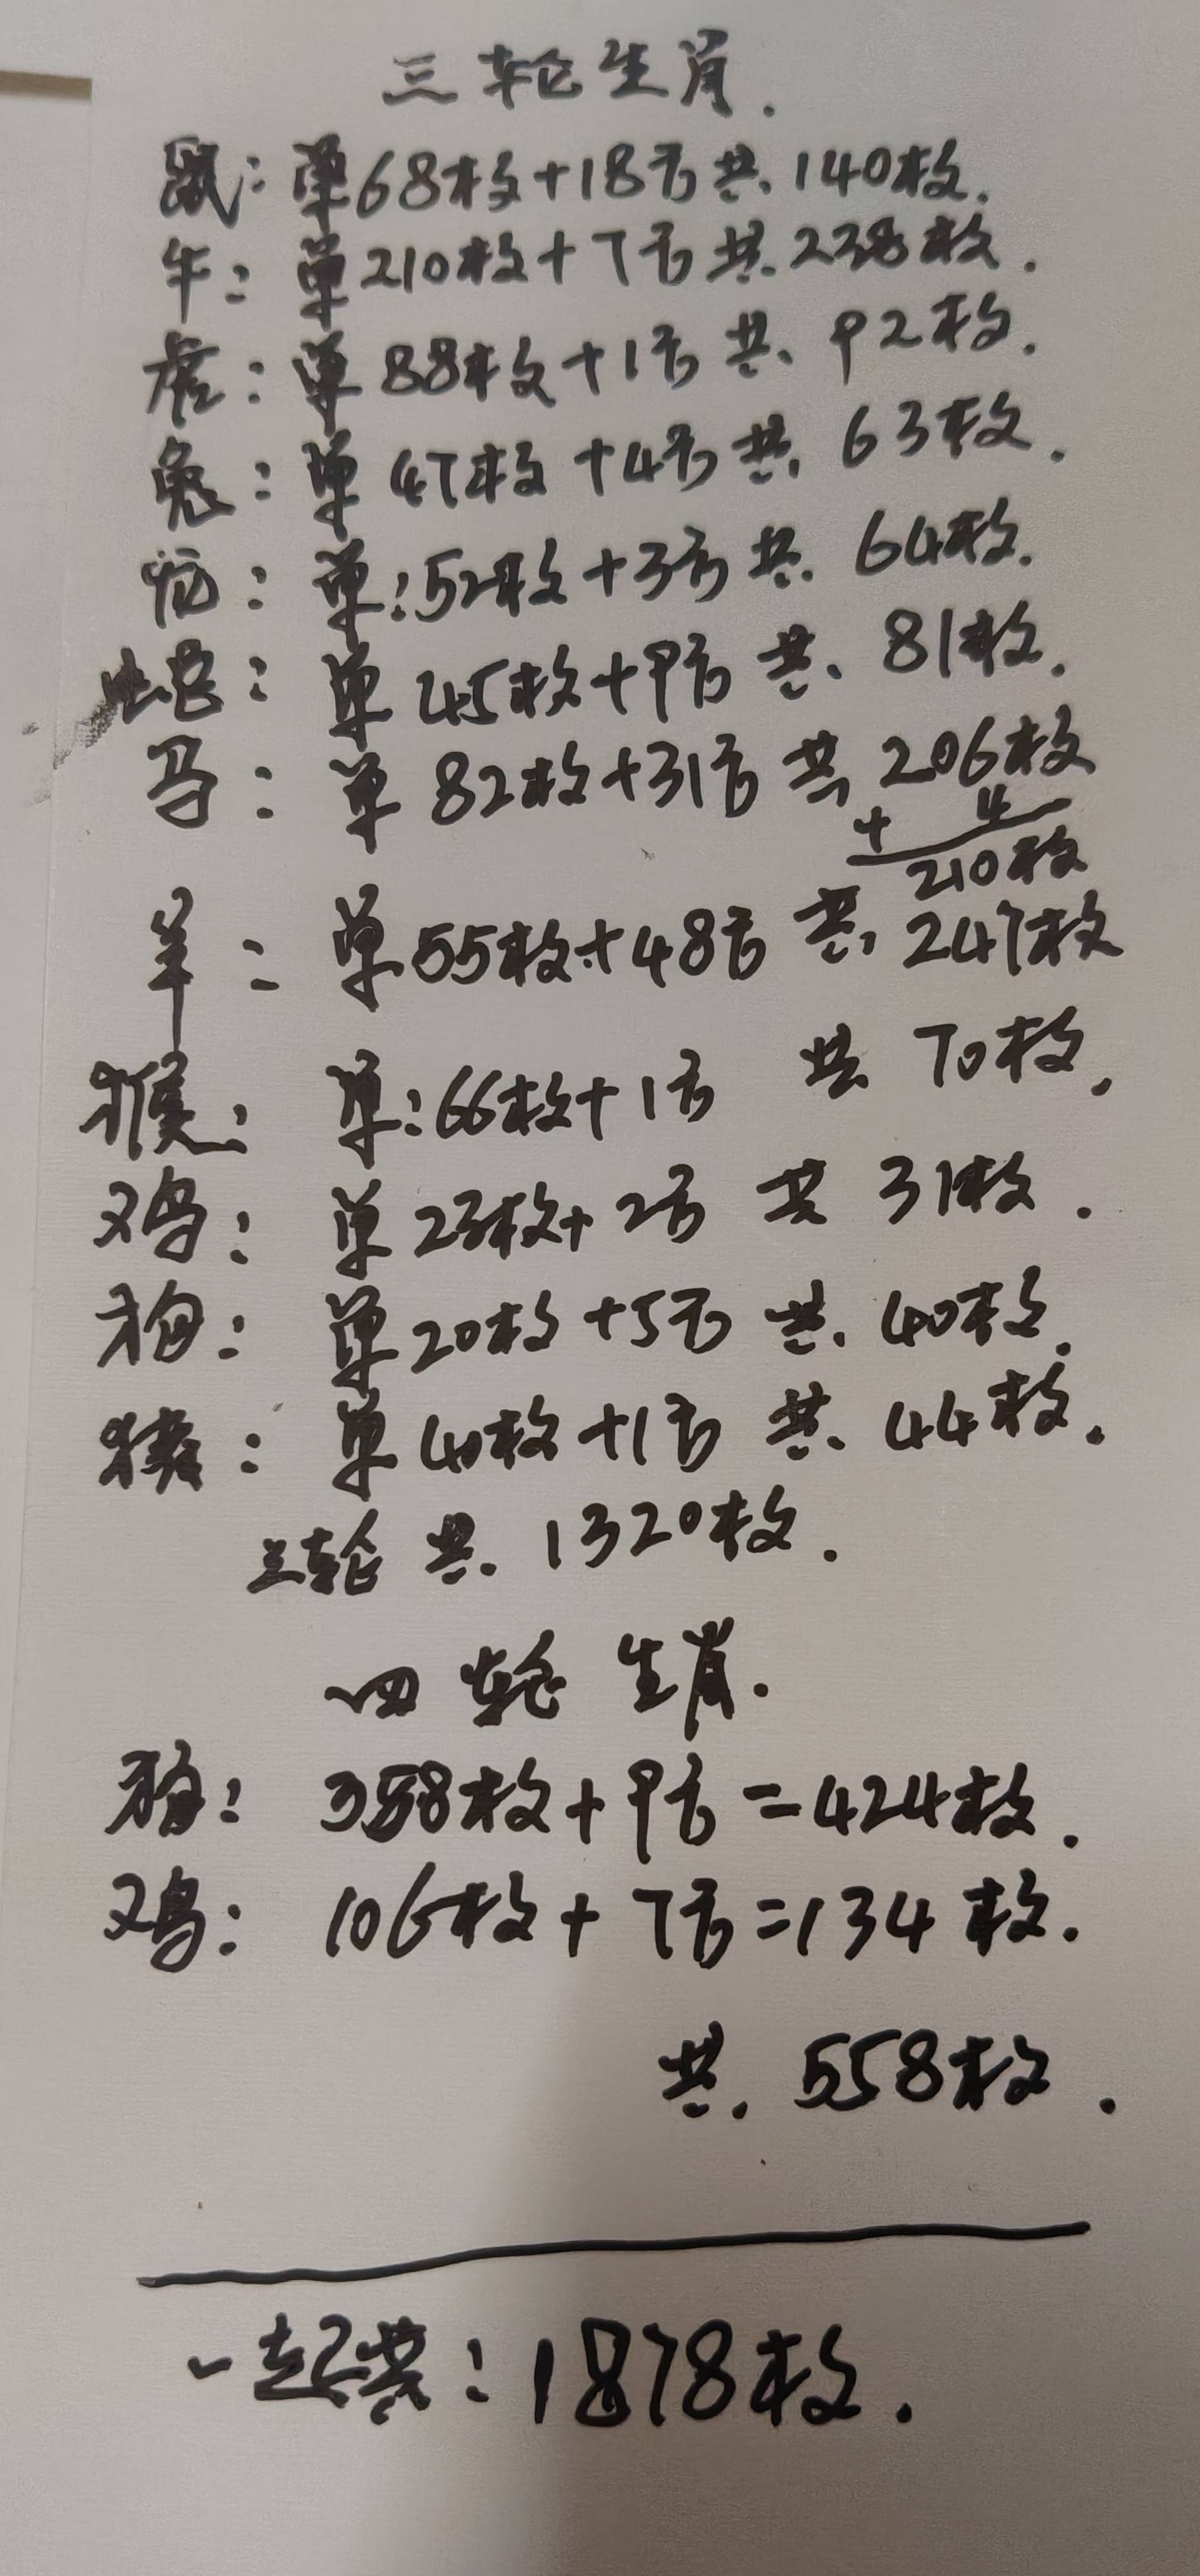 三轮生肖.
鼠: 单68枚+18方共.140枚.
牛: 单210枚+7方共.238枚.
虎: 单88枚+1方共.92枚.
兔: 单47枚+4方共.63枚.
龙: 单:52枚+3方共.64枚.
蛇: 单45枚+9方共.81枚.
马: 单82枚+31方共,206枚
+ 4
210枚
羊: 单55枚+48方共,247枚
猴: 单:66枚+1方 共 70枚.
鸡: 单23枚+2方 共 31枚.
狗: 单20枚+5方 共.40枚.
猪: 单40枚+1方 共.44枚.
三轮共.1320枚.
四轮生肖.
狗: 358枚+9方=424枚.
鸡: 106枚+7方=134枚.
共.558枚.
一起共:1878枚.